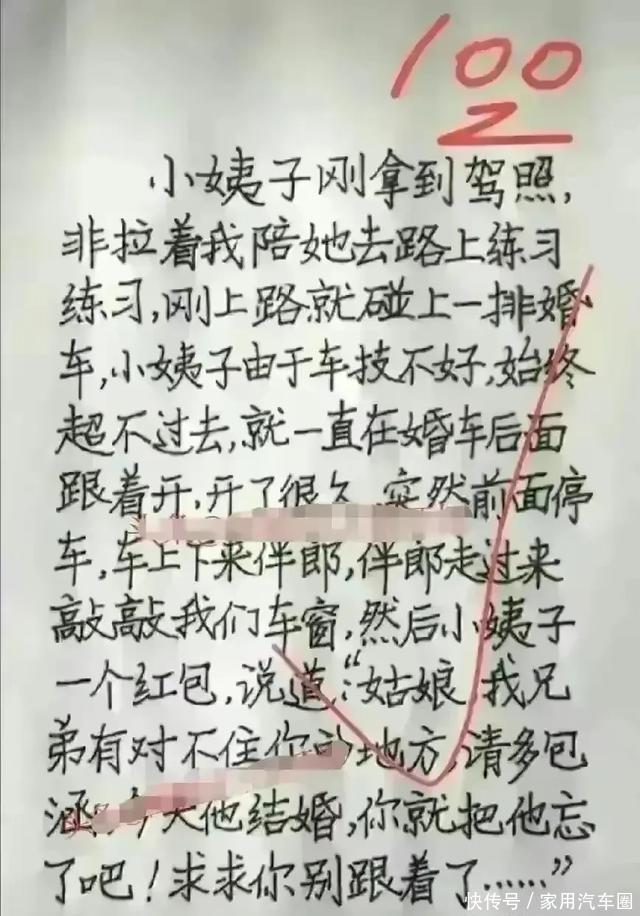 100
小姨子刚拿到驾照,
非拉着我陪她去路上练习
练习,刚上路就碰上一排婚
车,小姨子由于车技不好,始终
超不过去,就一直在婚车后面
跟着开,开了很久 突然前面停
车,车上下来伴郎,伴郎走过来
敲敲我们车窗,然后小姨子
一个红包,说道:“姑娘,我兄
弟有对不住你的地方,请多包
涵 今天他结婚,你就把他忘
了吧!求求你别跟着了……”
快传号/家用汽车圈